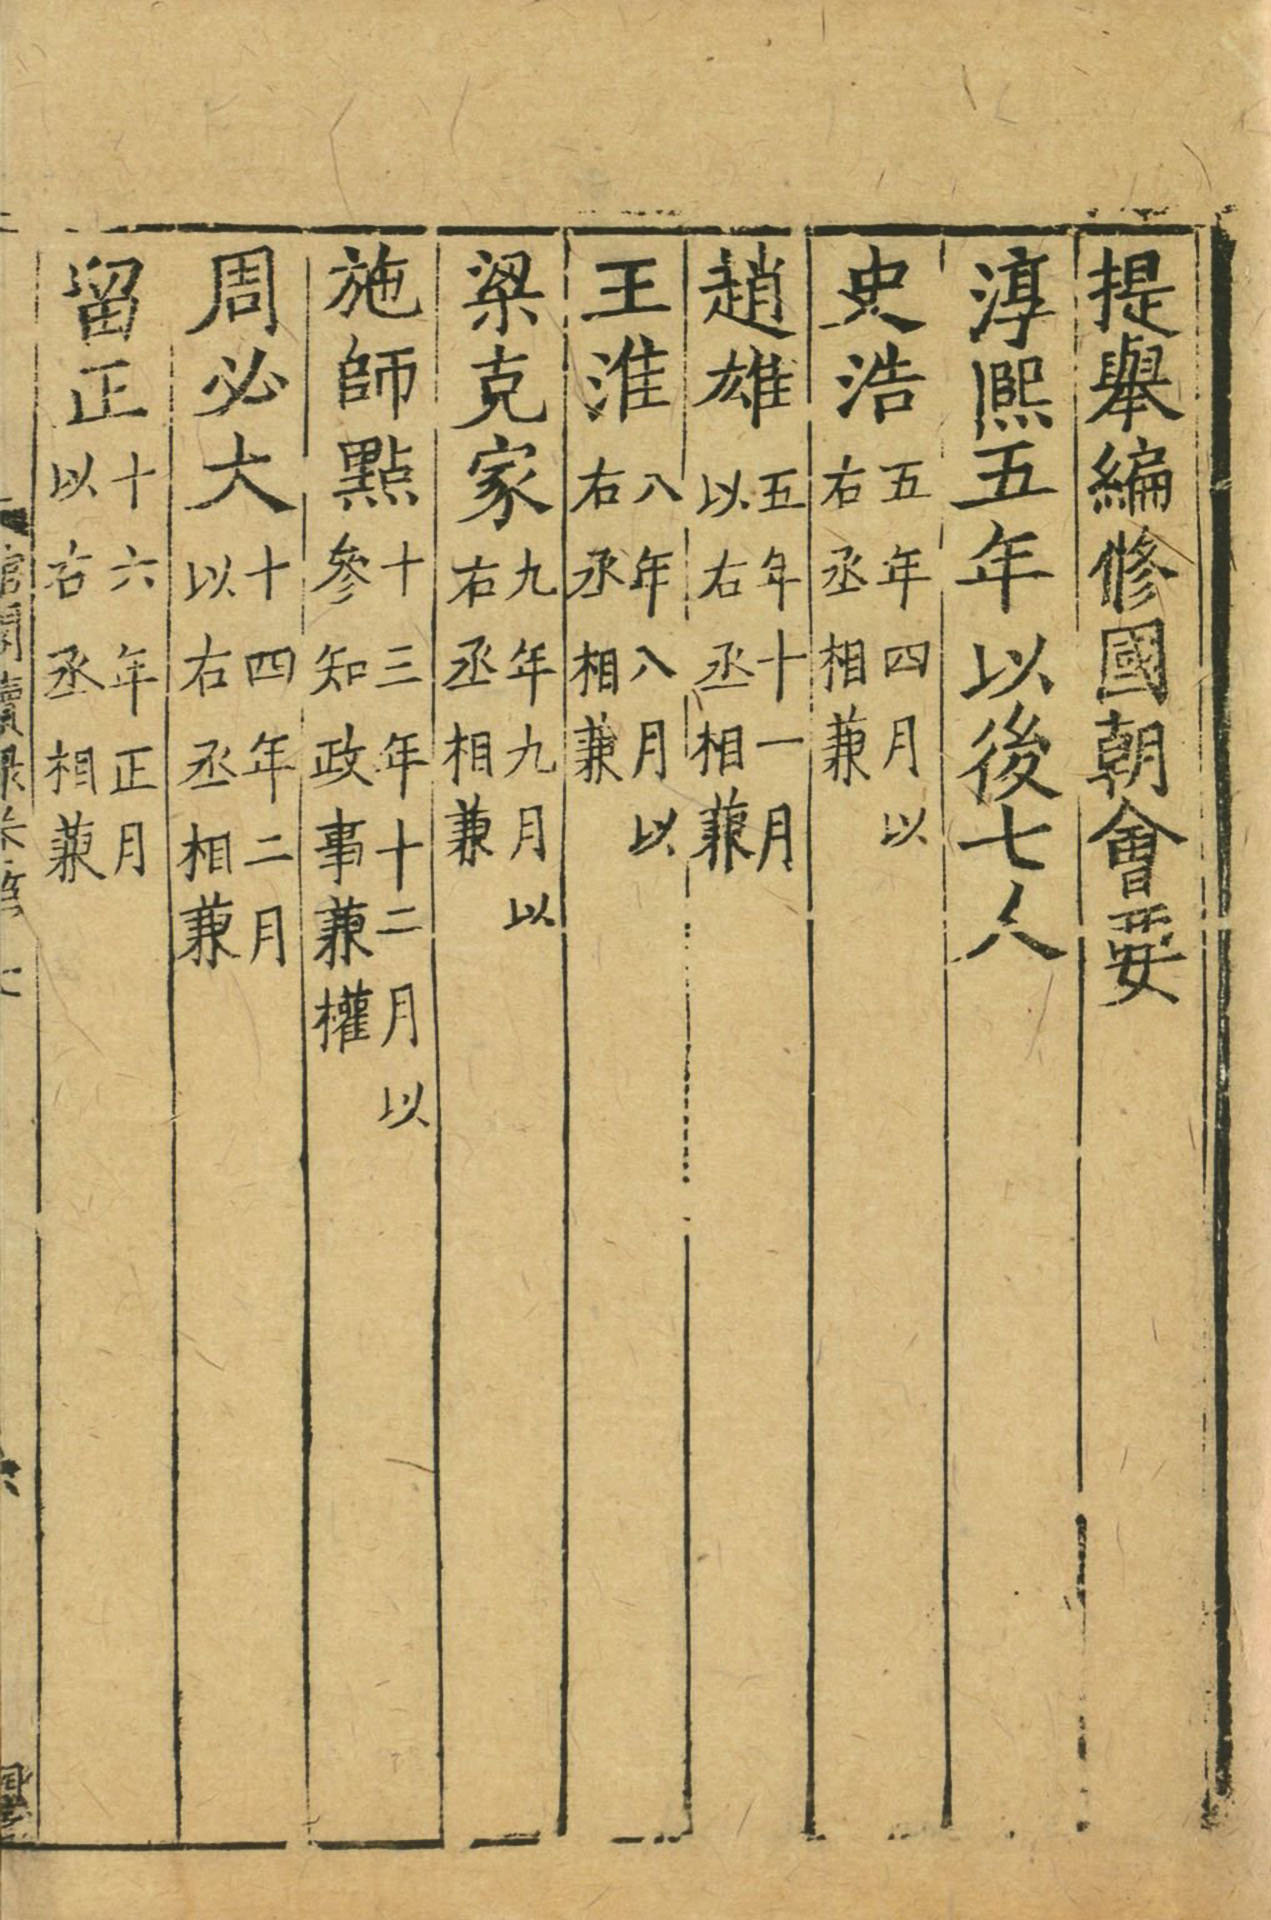 提舉編修國朝會要
淳熈五年以後七人
史浩五年四月以右丞相兼
趙雄五年十一月以右丞相兼
王淮八年八月以右丞相兼
梁克家九年九月以右丞相兼
施師點十三年十二月以參知政事兼權
周必大十四年二月以右丞相兼
留正十六年正月以右丞相兼